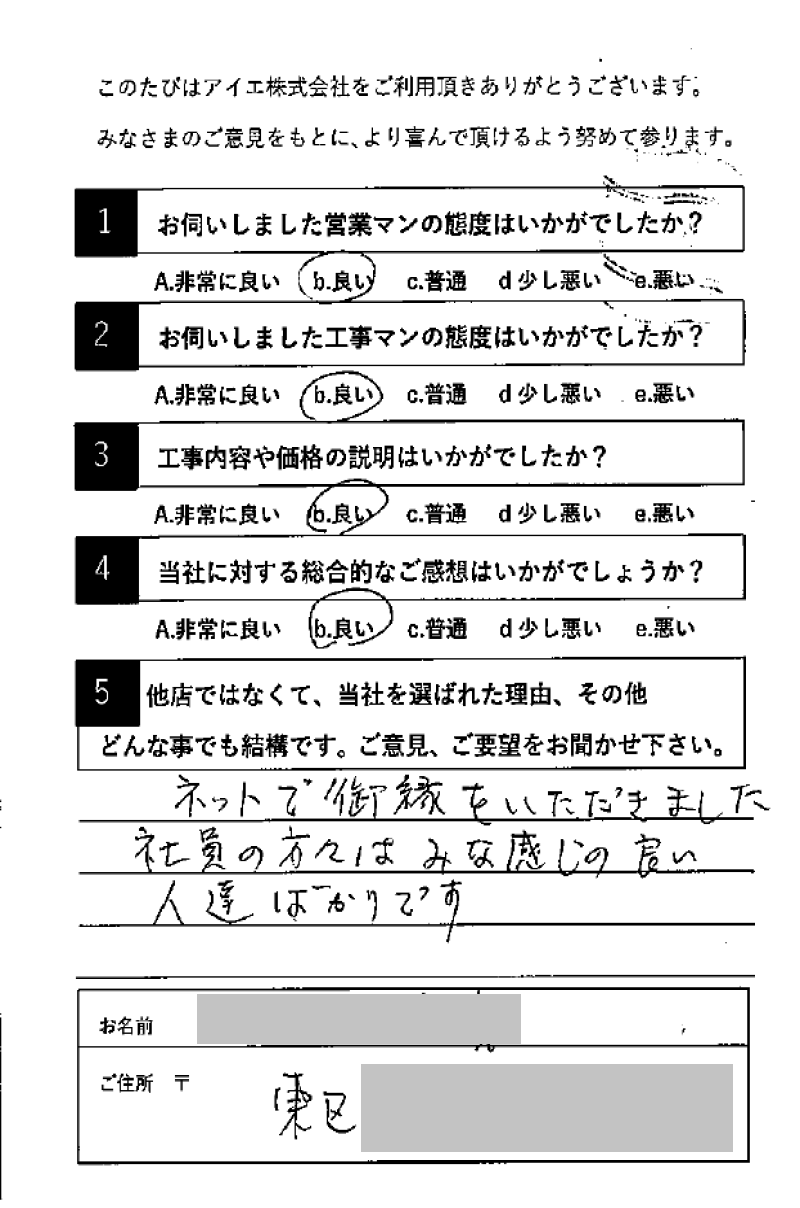 このたびはアイエ株式会社をご利用頂きありがとうございます。
みなさまのご意見をもとに、より喜んで頂けるよう努めて参ります。
1 お伺いしました営業マンの態度はいかがでしたか?
A.非常に良い b.良い c.普通 d少し悪い e.悪い
2 お伺いしました工事マンの態度はいかがでしたか?
A.非常に良い b.良い c.普通 d少し悪い e.悪い
3 工事内容や価格の説明はいかがでしたか?
A.非常に良い b.良い c.普通 d少し悪い e.悪い
4 当社に対する総合的なご感想はいかがでしょうか?
A.非常に良い b.良い c.普通 d少し悪い e.悪い
5 他店ではなくて、当社を選ばれた理由、その他
どんな事でも結構です。ご意見、ご要望をお聞かせ下さい。
ネットで御縁をいただきました
社員の方々はみな感じの良い
人達ばかりです
お名前
ご住所 〒
東区